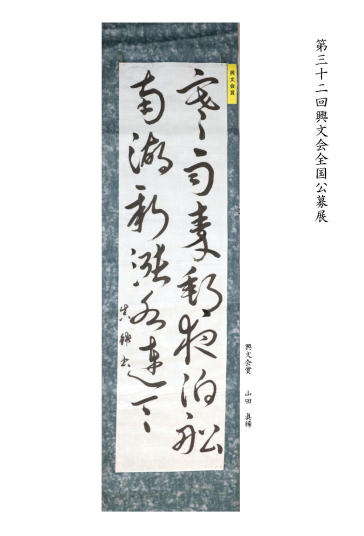 第三十二回興文会全国公募展
興文会賞　山田
興文会賞
寒雨秦郵夜泊船
南湖新漲水連天